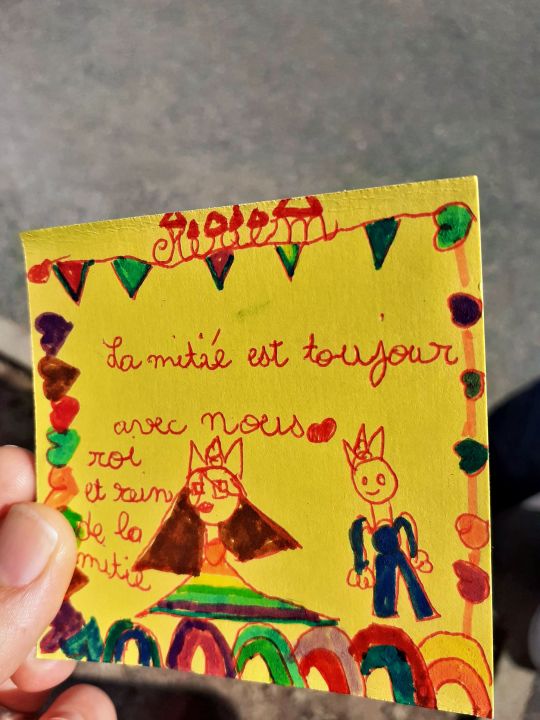 La mitié est toujour
avec nous
roi
et rein
de la
mitié